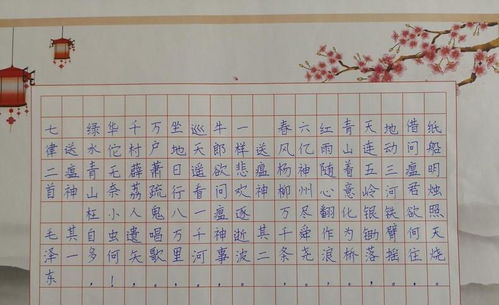 七律二首 毛泽东
送瘟神 其一
绿水青山枉自多，
华佗无奈小虫何！
千村薜荔人遗矢，
万户萧疏鬼唱歌。
坐地日行八万里，
巡天遥看一千河。
牛郎欲问瘟神事，
一样悲欢逐逝波。
送瘟神 其二
春风杨柳万千条，
六亿神州尽舜尧。
红雨随心翻作浪，
青山着意化为桥。
天连五岭银锄落，
地动三河铁臂摇。
借问瘟君欲何住，
纸船明烛照天烧。